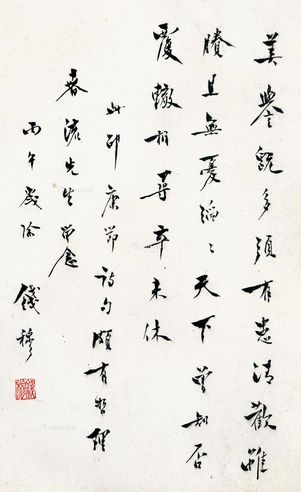 美譽既多須有患清歡雖
賸且無憂滔滔天下曾知否
覆轍相尋卒未休
此邵康節詩句頗有哲理
春流先生留念
丙午歲除
錢穆